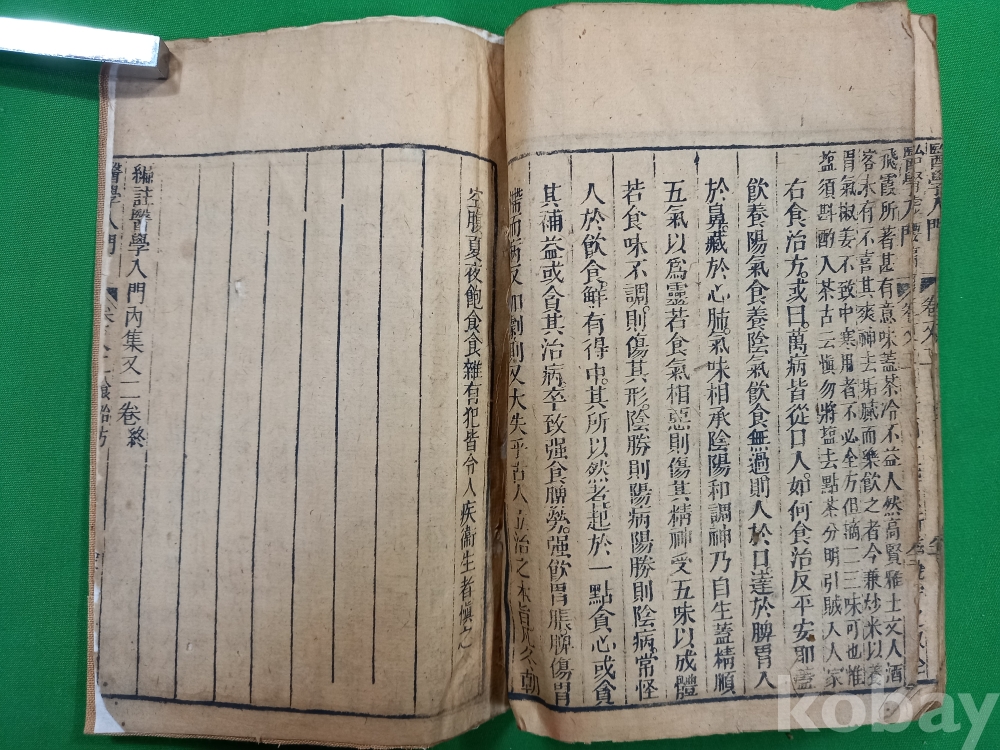 醫學入門
卷之二
飛霞所著甚有意味蓋茶冷不益人然高賢雅士文人酒
客亦有不喜其爽神去垢膩而樂飲之者今兼炒米以養
胃氣椒姜不致中寒用者不必全方但滴二三味可也惟
塩須斟酌入茶古云慎勿將塩去點茶分明引賊入人家
右食治方。或曰。萬病皆從口入。如何食治反平安耶。蓋
飲養陽氣食養陰氣飲食無過則入於口達於脾胃入
於鼻。藏於心肺。氣味相承陰陽和調神乃自生蓋精順
五氣以為靈若食氣相惡則傷其精神受五味以成體
若食味不調。則傷其形。陰勝則陽病陽勝則陰病。常怪
人於飲食。鮮有得中。其所以然者起於一點貪心或貪
其補益或貪其治病。卒致强食脾勞。强飲胃脹脾傷胃
滯而病反加劇則又大失乎古人立治之本旨
空腹夏夜飽食食雜有犯皆令人疾衞生者慎之
編註醫學入門內集又二卷終
醫學入門
食治方
kobay